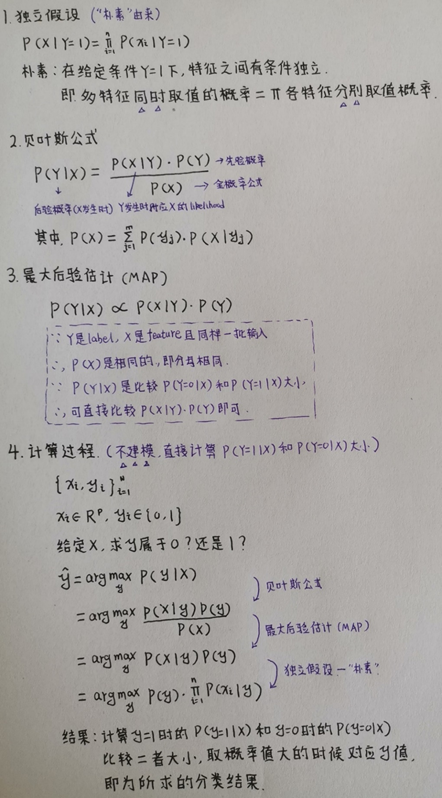 1. 独立假设 ("朴素"由来)
P(X|Y=1) = ∏ᵢ₌₁ⁿ P(xᵢ|Y=1)
朴素:在给定条件Y=1下,特征之间有条件独立.
即.多特征同时取值的概率=π各特征分别取值概率.
2. 贝叶斯公式
P(Y|X) = P(X|Y)·P(Y) / P(X)
→先验概率
→全概率公式
后验概率(X发生时) Y发生时对应X的likelihood
其中, P(X) = ∑ⱼ₌₁ᵐ P(yⱼ)·P(X|yⱼ)
3. 最大后验估计 (MAP)
P(Y|X) ∝ P(X|Y)·P(Y)
∵ Y是label, X是feature且同样一批输入
∴ P(X)是相同的,即分母相同.
∵ P(Y|X)是比较P(Y=0|X)和P(Y=1|X)大小.
∴ 可直接比较P(X|Y)·P(Y)即可.
4. 计算过程. (不建模.直接计算P(Y=1|X)和P(Y=0|X)大小.)
{xᵢ, yᵢ}ᵢ₌₁ᴺ
xᵢ∈Rᴾ, yᵢ∈{0,1}
给定X, 求y属于0?还是1?
ŷ = argmax_y P(y|X)
贝叶斯公式
= argmax_y P(X|y)P(y) / P(X)
最大后验估计 (MAP)
= argmax_y P(X|y)P(y)
独立假设—"朴素"
= argmax_y P(y)·∏ᵢ₌₁ⁿ P(xᵢ|y)
结果:计算y=1时的P(y=1|X)和y=0时的P(y=0|X)
比较二者大小,取概率值大的时候对应y值.
即为所求的分类结果.